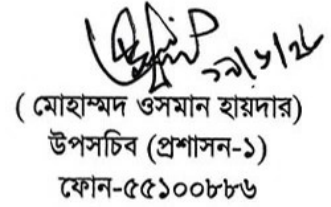 ( মোহাম্মদ ওসমান হায়দার)
উপসচিব (প্রশাসন-১)
ফোন-৫৫১০০৮৮৬